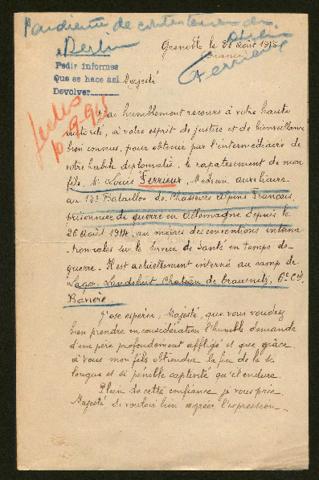 Pendiente de contestación de
Berlin
Pedir informes
Que se hace así
Devolver
Grenoble le 28 Août 1915
France
Ferrieux
Majesté
J'ai humblement recours à votre haute
autorité, à votre esprit de justice et de bienveillance
bien connus, pour obtenir par l'intermédiaire de
votre habile diplomatie, le rapatriement de mon
fils, Mr Louis Ferrieux, Médecin auxiliaire
au 13e Bataillon de Chasseurs Alpins Français
prisonnier de guerre en Allemagne depuis le
26 Août 1914, au mépris des conventions interna
tionales sur le Service de Santé en temps de
guerre. Il est actuellement interné au camp de
Lager Landshut Château de Trausnitz, 6e Cie
Bavière
J'ose espérer, Majesté, que vous voudrez
bien prendre en considération l'humble demande
d'un père profondément affligé et que grâce
à vous mon fils obtiendra la fin de la si
longue et si pénible captivité qu'il endure.
Plein de cette confiance je vous prie
Majesté de vouloir bien agréer l'expression